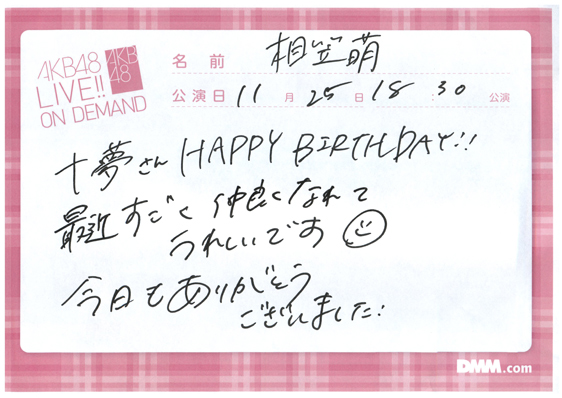 AKB48
LIVE!!
ON DEMAND
AKB
48
名前 相笠萌
公演日 11月25日18:30公演
十夢さん HAPPY BIRTHDAY!!
最近すごく仲良くなれて
うれしいです
今日もありがとう
ございました!
DMM.com